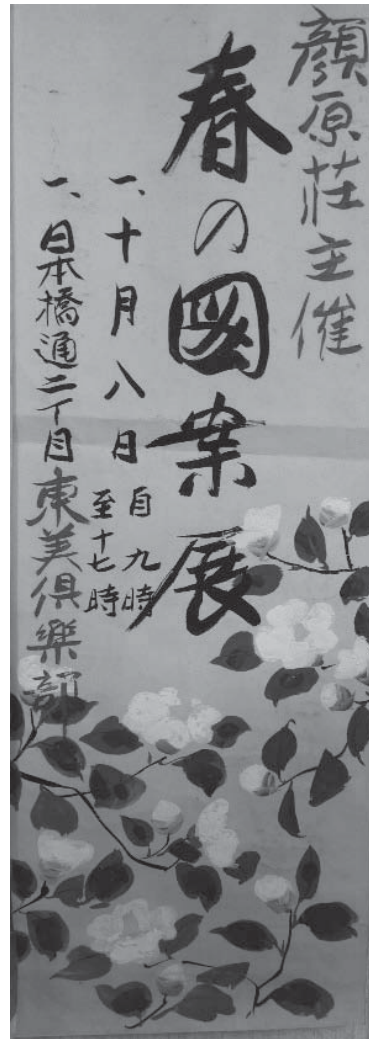 顔原荘主催
春の圖案展
一、十月八日自九時
至十七時
一、日本橋通二丁目東美倶樂部